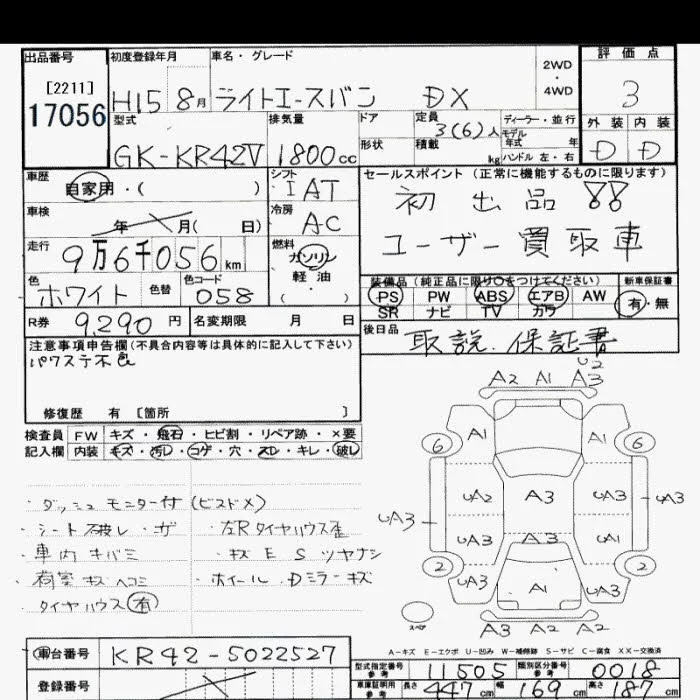 出品番号 初度登録年月 車名・グレード 2WD・4WD 評価点
[2211] 17056 H15 8月 ライトエースバン DX 3
型式 排気量 ドア 定員 3(6)人 ディーラー・並行 外装 内装
GK-KR42V 1800cc 形状 積載 kg モデル年式 年 ハンドル 左・右 D D
車歴 自家用・( ) シフト IAT セールスポイント (正常に機能するものに限ります)
車検 年 月( 日) 冷房 AC 初出品!!
走行 9万6千056km 燃料 ガソリン 軽油 ( ・ ) ユーザー買取車
色 ホワイト 色替 色コード 058 装備品 (純正品に限り○をつけてください) 新車保証書
PS PW ABS エアB AW 有・無
SR ナビ TV カワ
R券 9,290円 名変期限 月 日 後日品 取説.保証書
注意事項申告欄(不具合内容等は具体的に記入して下さい)
パワステ不良
修復歴 有 [箇所 ]
検査員 FW キズ・飛石・ヒビ割・リペア跡・×要
記入欄 内装 キズ・汚レ・コゲ・穴・スレ・キレ・破レ
U2
A2 A1 A3
6 A1 A1 6
UA2 A3 UA3 UA3
UA3 UA3 A3 UA3
2 UA3 A1 UA3 2
スペア A3 A2 A2
・ダッシュモニター付(ビスドメ)
・シート破レ・ザ ・左Rタイヤハウス歪
・車内キバミ ・キズ E S ツヤナシ
・荷室キズヘコミ ・ホイール.Dミラーキズ
・タイヤハウス(有)
A-キズ E-エクボ U-凹み W-補修跡 S-サビ C-腐食 XX-交換済
車台番号 KR42-5022527
登録番号
型式指定番号 参考 11505 類別区分番号 参考 0018
車庫証明用 参考 長さ 447cm 幅 169cm 高さ 187cm